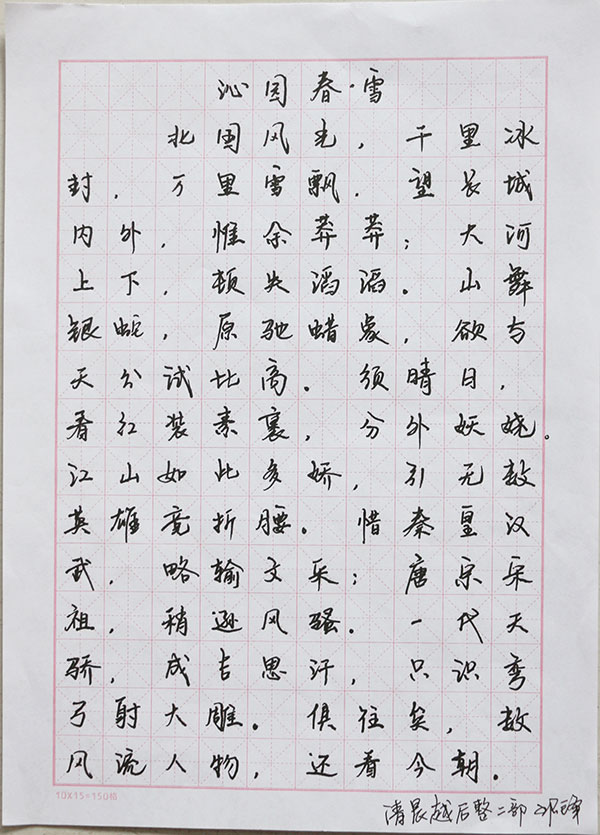 沁园春·雪
北国风光，千里冰
封，万里雪飘。望长城
内外，惟余莽莽；大河
上下，顿失滔滔。山舞
银蛇，原驰蜡象，欲与
天公试比高。须晴日，
看红装素裹，分外妖娆。
江山如此多娇，引无数
英雄竞折腰。惜秦皇汉
武，略输文采；唐宗宋
祖，稍逊风骚。一代天
骄，成吉思汗，只识弯
弓射大雕。俱往矣，数
风流人物，还看今朝。
10X15=150格
清晨越后整二部